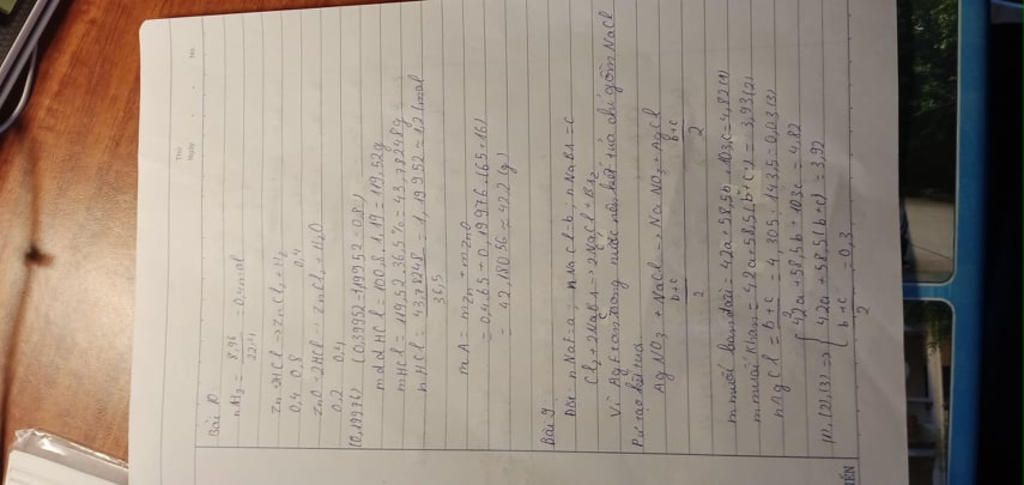 Thứ
Ngày . . No.
Bài 10:
nH2 = 8,96 / 22,4 = 0,4 mol
Zn + 2HCl → ZnCl2 + H2
0,4 0,8 0,4
ZnO + 2HCl → ZnCl2 + H2O
0,2 0,4
(0,19976) (0,39952 = 1,19952 - 0,8)
mddHCl = 100,8 . 1,19 = 119,52g
mHCl = 119,52 . 36,5% = 43,78248g
nHCl = 43,78248 / 36,5 = 1,19952 ≈ 1,2 (mol)
mA = mZn + mZnO
= 0,4.65 + 0,19976.(65+16)
= 42,18056 ≈ 42,2 (g)
Bài 9:
Đặt: nNaF = a; nNaCl = b; nNaBr = c
Cl2 + 2NaBr → 2NaCl + Br2
Vì AgF tan trong nước nên kết tủa chỉ gồm NaCl
Pư tạo kết tủa
AgNO3 + NaCl → NaNO3 + AgCl
b+c / 2 b+c / 2
m muối ban đầu = 42a + 58,5b + 103c = 4,82 (1)
m muối khan = 42a + 58,5(b+c) = 3,93 (2)
nAgCl = b+c / 2 = 4,305 : 143,5 = 0,03 (3)
(1), (2), (3) ⇒ { 42a + 58,5b + 103c = 4,82
42a + 58,5(b+c) = 3,92
b+c / 2 = 0,3
TIẾN